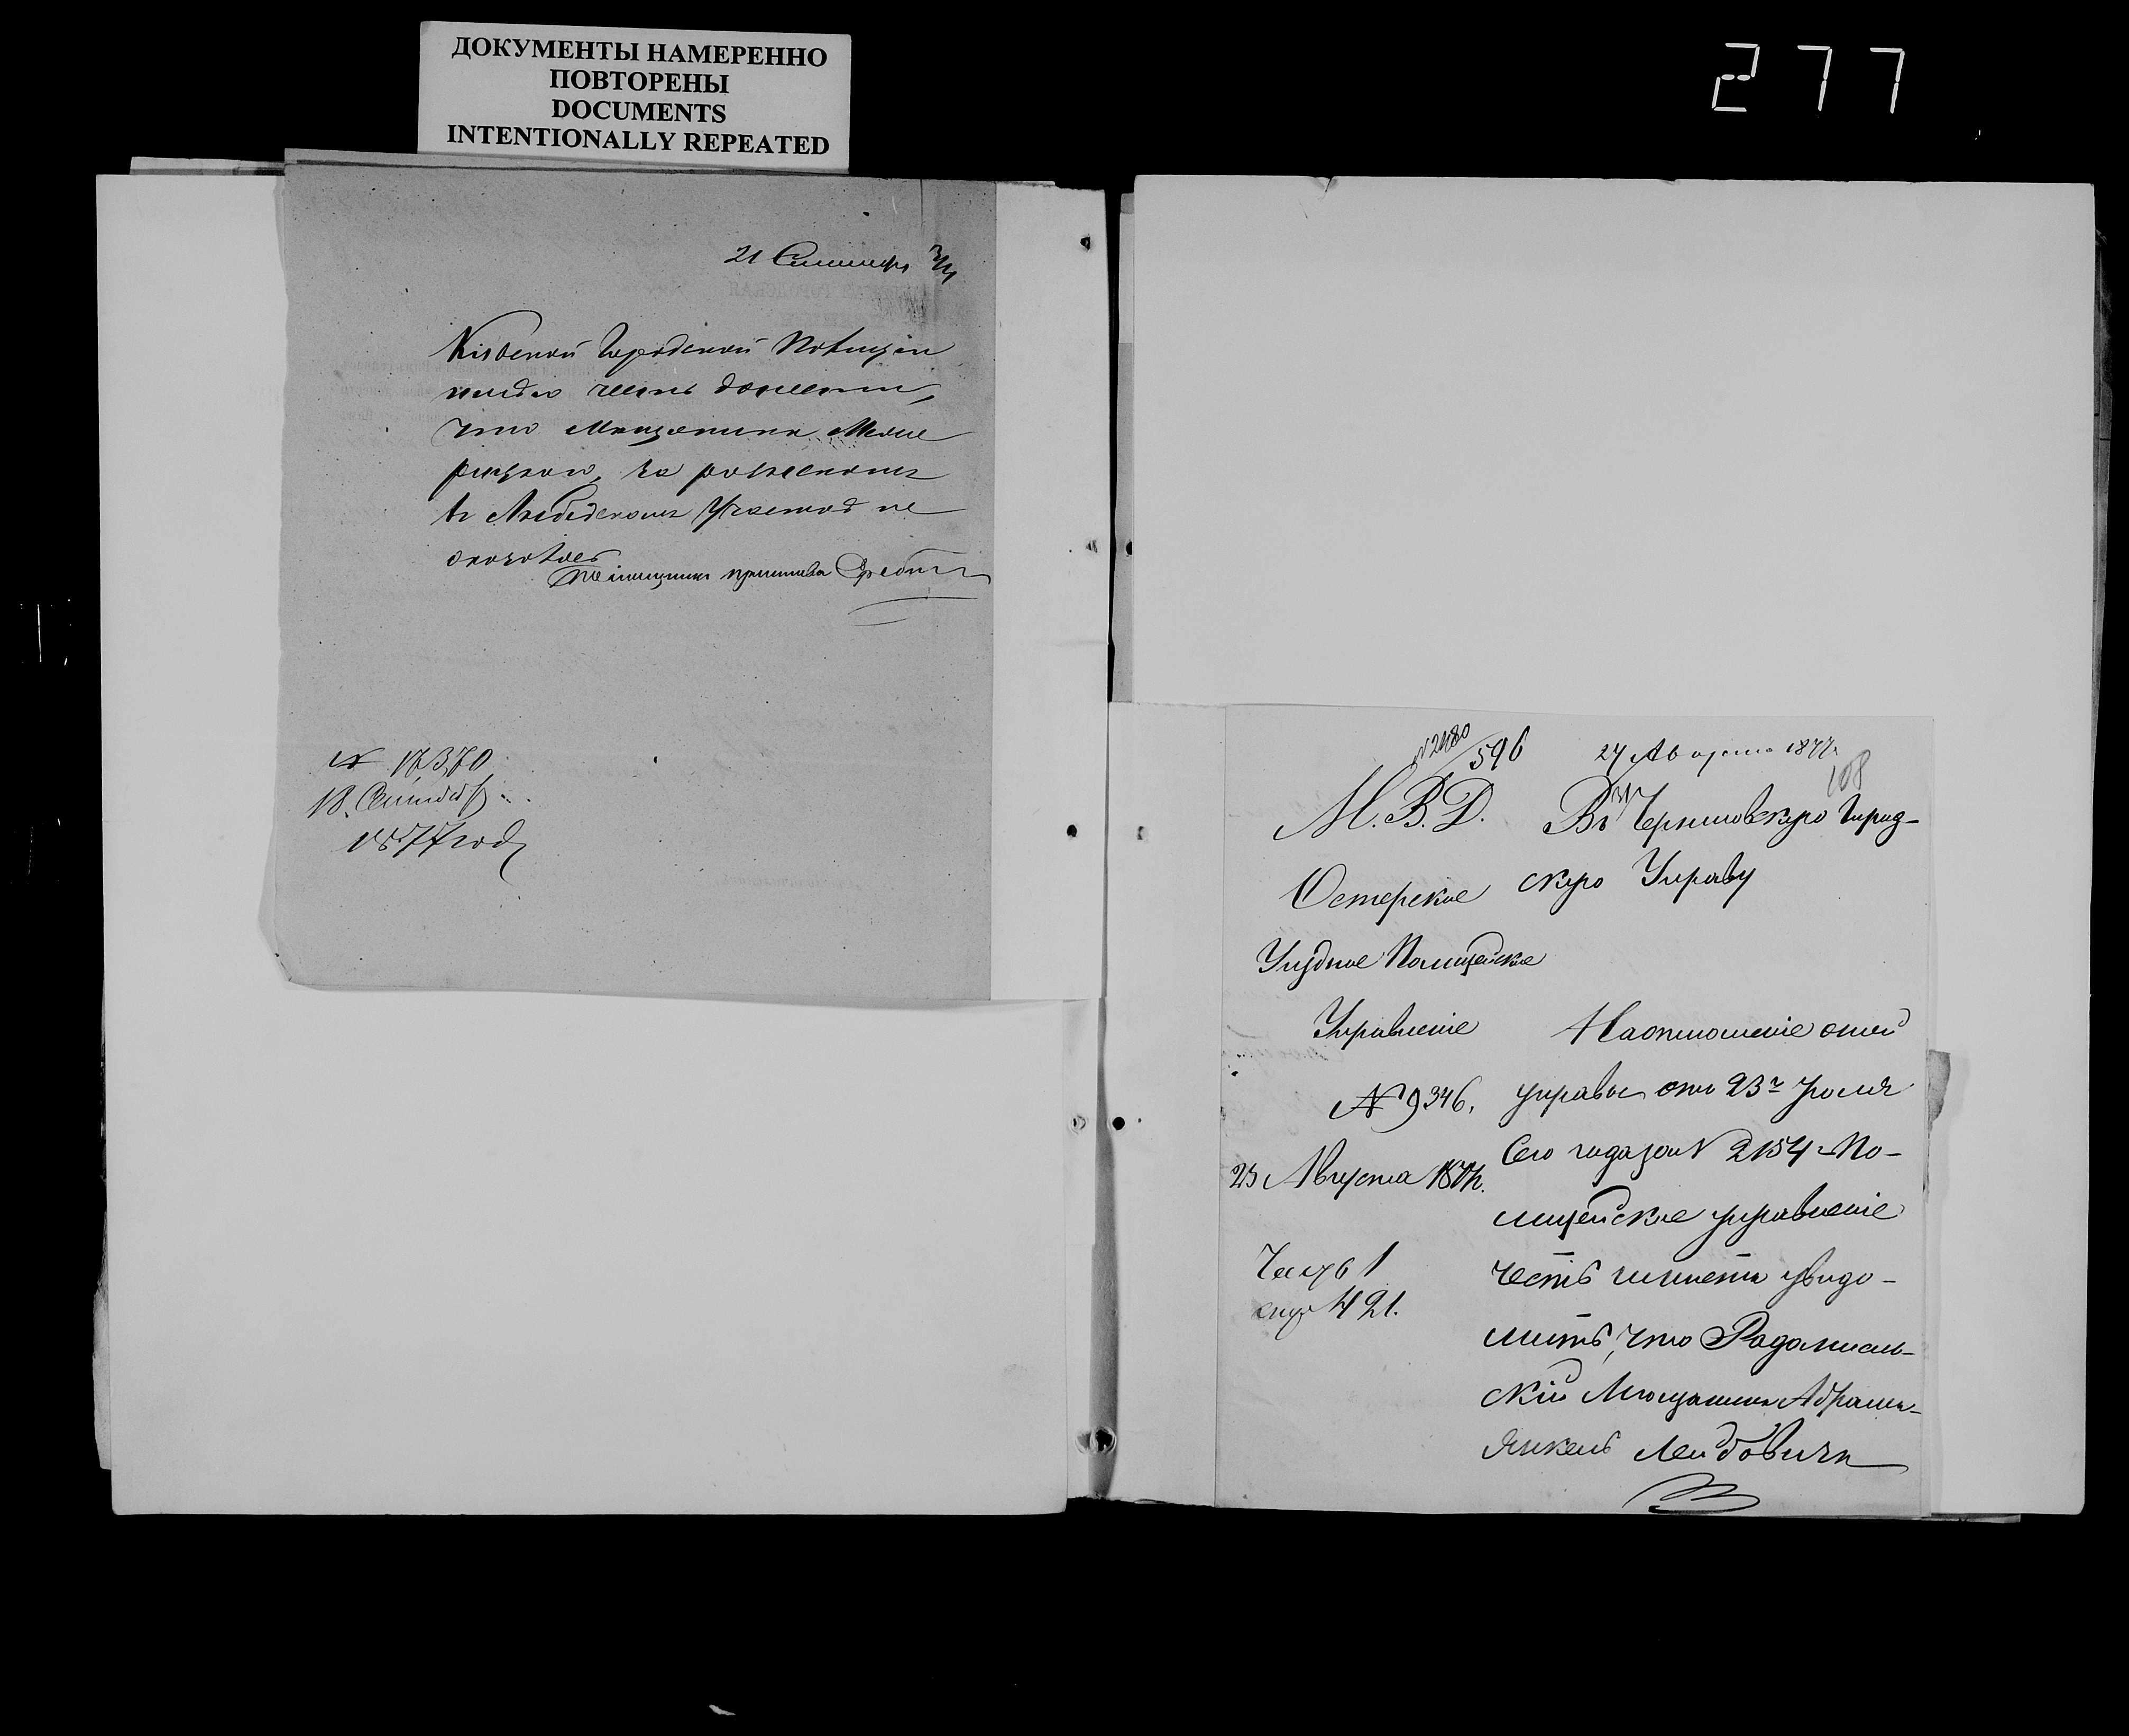 ДОКУМЕНТЫ НАМЕРЕННО
ПОВТОРЕНЫ
DOCUMENTS
INTENTIONALLY REPEATED
277
21 Сентября
Кіевской Городской Полиціи
имѣю честь донести,
что Мѣщанина
за розыскомъ
въ Лыбедскомъ Участкѣ не
оказалось
Помощникъ пристава
№ 17370
18 Сентября
1877 года
№ 2480/596
27 Августа 1877 г.
108
М. В. Д.
Остерское
Уѣздное Полицейское
Управленіе
№ 9346.
23 Августа 1877 г.
Часть 1
421.
Въ Черниговскую Город-
скую Управу
На отношеніе оной
управы отъ 23го Іюля
Сего года за № 2154 По-
лицейское управленіе
честь имѣетъ увѣдо-
мить, что Радомысль-
скій Мѣщанинъ Абрамъ-
Янкель Лейбовичъ